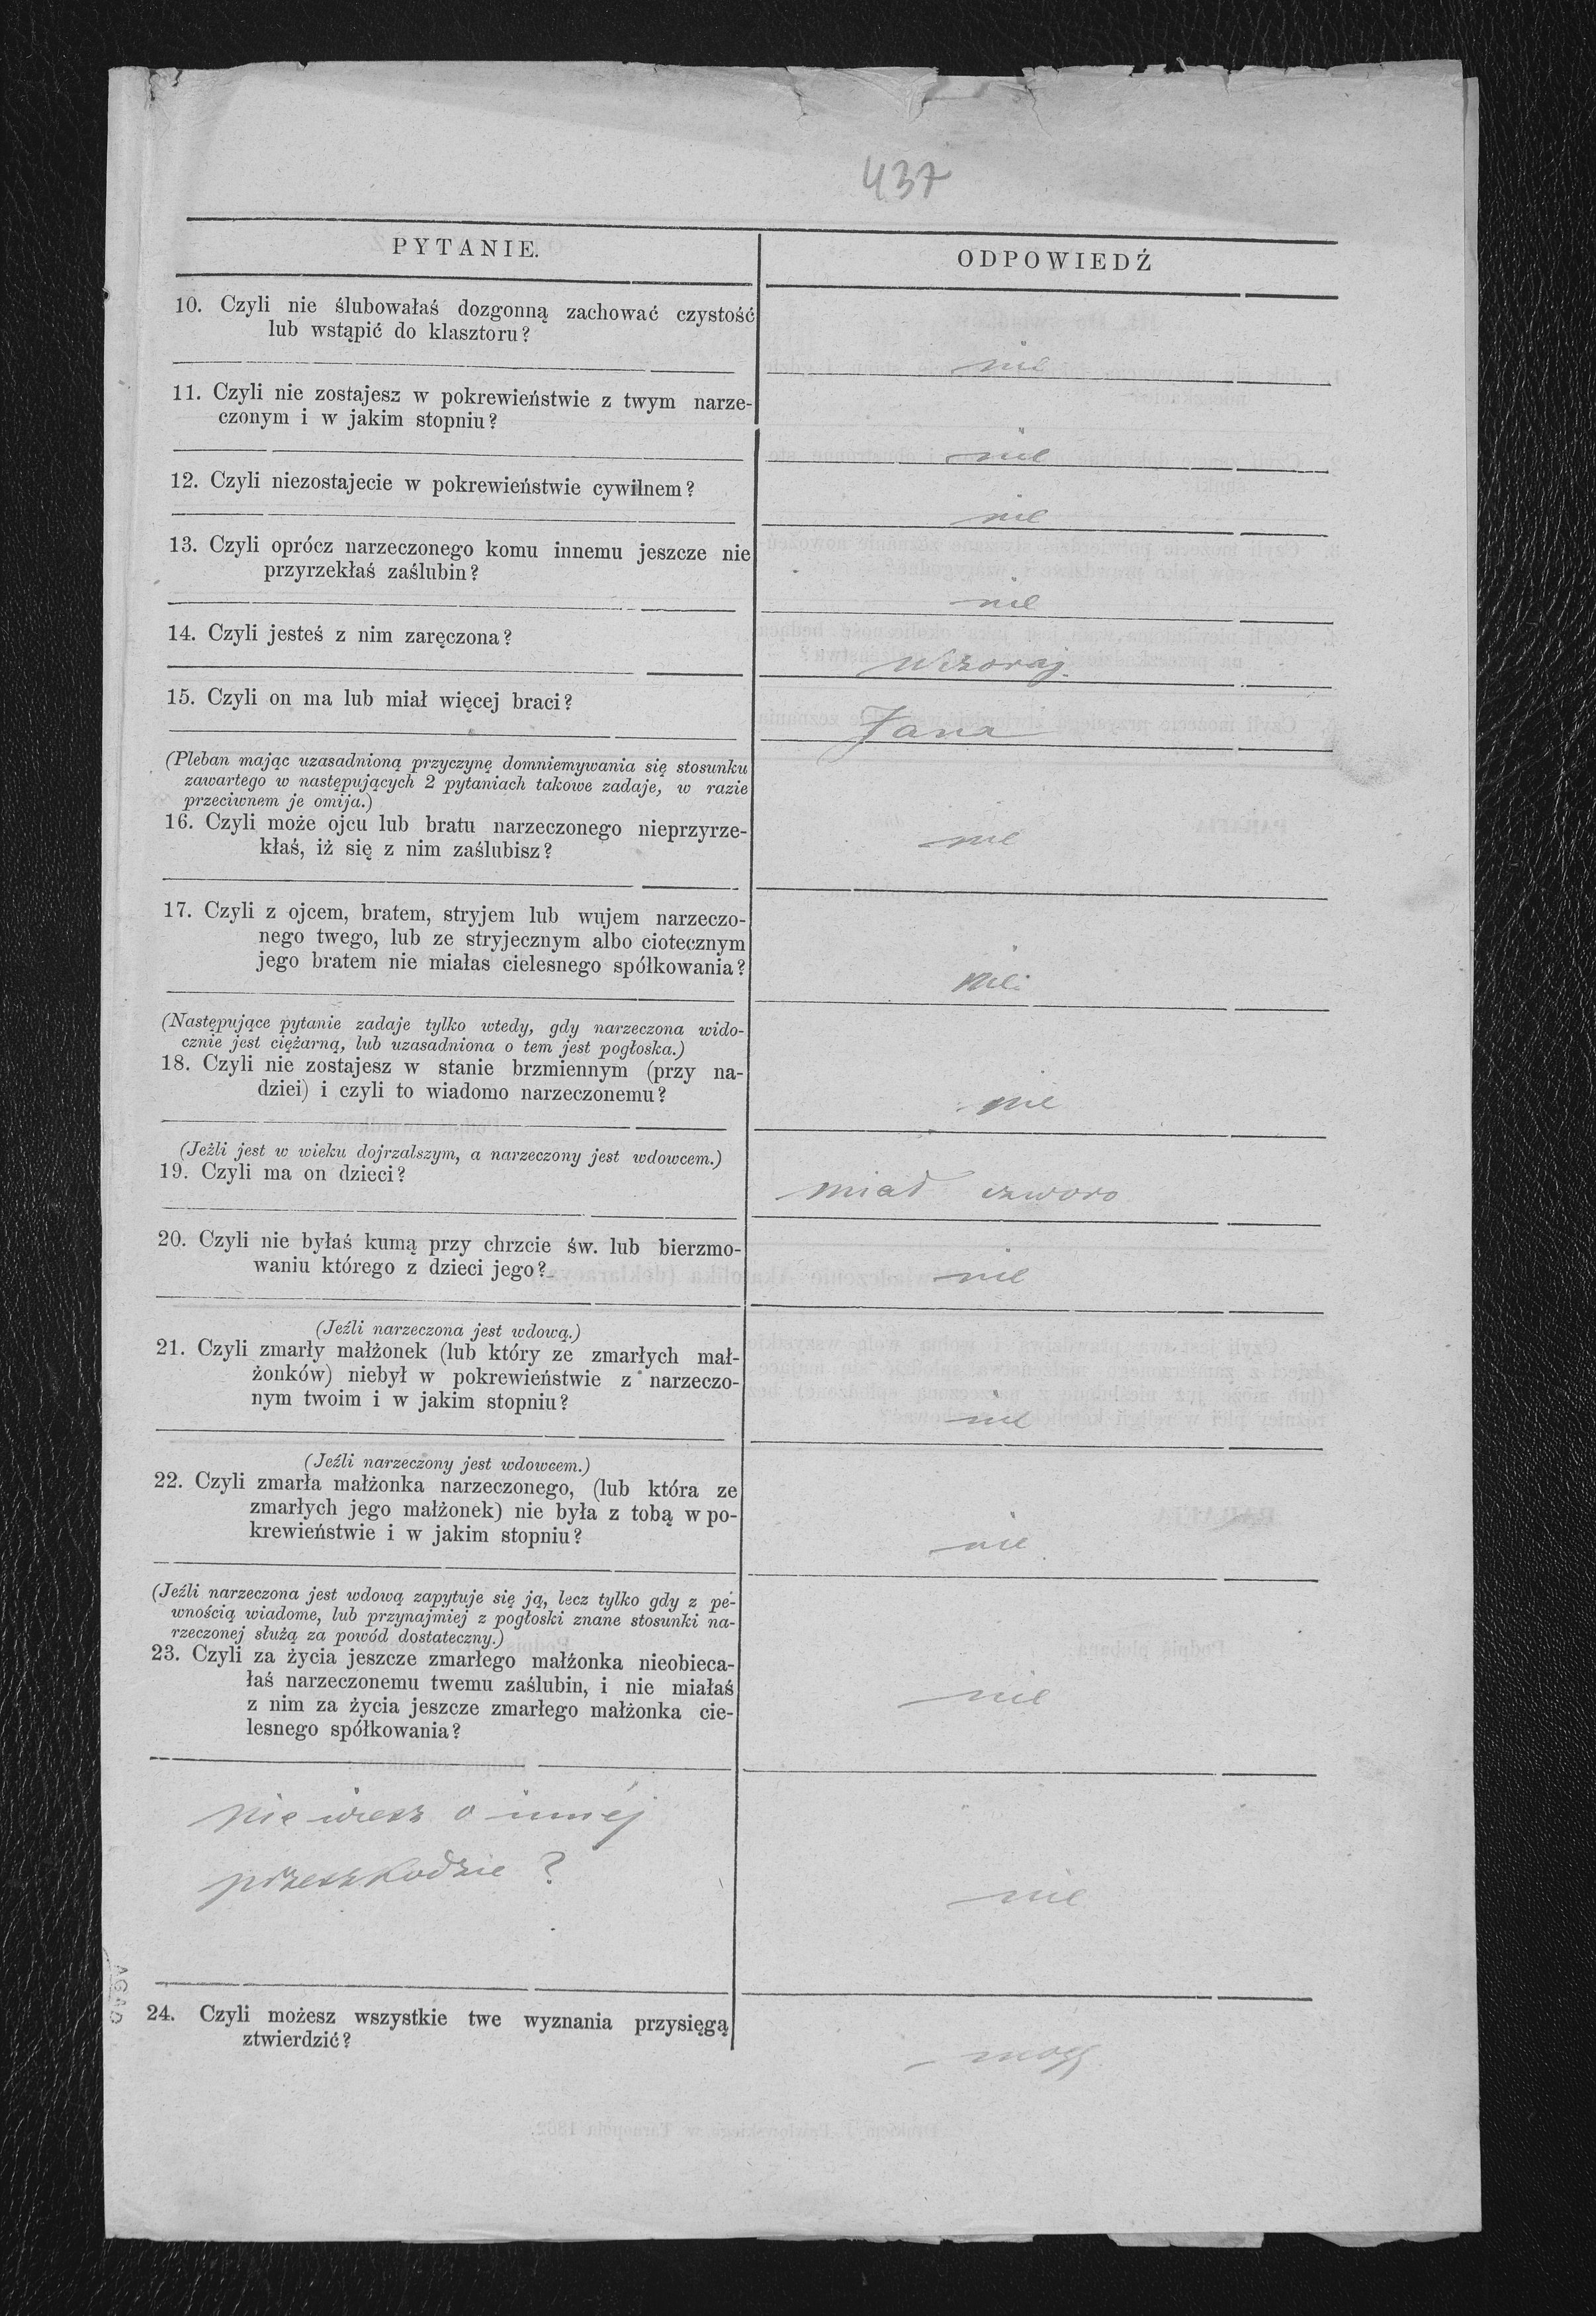 437
PYTANIE.
ODPOWIEDŹ
10. Czyli nie ślubowałaś dozgonną zachować czystość
lub wstąpić do klasztoru?
nie
11. Czyli nie zostajesz w pokrewieństwie z twym narze-
czonym i w jakim stopniu?
nie
12. Czyli niezostajecie w pokrewieństwie cywilnem?
nie
13. Czyli oprócz narzeczonego komu innemu jeszcze nie
przyrzekłaś zaślubin?
nie
14. Czyli jesteś z nim zaręczona?
wczoraj
15. Czyli on ma lub miał więcej braci?
Jana
(Pleban mając uzasadnioną przyczynę domniemywania się stosunku
zawartego w następujących 2 pytaniach takowe zadaje, w razie
przeciwnem je omija.)
16. Czyli może ojcu lub bratu narzeczonego nieprzyrze-
kłaś, iż się z nim zaślubisz?
nie
17. Czyli z ojcem, bratem, stryjem lub wujem narzeczo-
nego twego, lub ze stryjecznym albo ciotecznym
jego bratem nie miałas cielesnego spółkowania?
nie
(Następujące pytanie zadaje tylko wtedy, gdy narzeczona wido-
cznie jest ciężarną, lub uzasadniona o tem jest pogłoska.)
18. Czyli nie zostajesz w stanie brzmiennym (przy na-
dziei) i czyli to wiadomo narzeczonemu?
nie
(Jeżli jest w wieku dojrzalszym, a narzeczony jest wdowcem.)
19. Czyli ma on dzieci?
miał czworo
20. Czyli nie byłaś kumą przy chrzcie św. lub bierzmo-
waniu którego z dzieci jego?
nie
(Jeźli narzeczona jest wdową.)
21. Czyli zmarły małżonek (lub który ze zmarłych mał-
żonków) niebył w pokrewieństwie z narzeczo-
nym twoim i w jakim stopniu?
nie
(Jeźli narzeczony jest wdowcem.)
22. Czyli zmarła małżonka narzeczonego, (lub która ze
zmarłych jego małżonek) nie była z tobą w po-
krewieństwie i w jakim stopniu?
nie
(Jeźli narzeczona jest wdową zapytuje się ją, lecz tylko gdy z pe-
wnością wiadome, lub przynajmiej z pogłoski znane stosunki na-
rzeczonej służą za powód dostateczny.)
23. Czyli za życia jeszcze zmarłego małżonka nieobieca-
łaś narzeczonemu twemu zaślubin, i nie miałaś
z nim za życia jeszcze zmarłego małżonka cie-
lesnego spółkowania?
nie
nie wiesz o innéj
przeszkodzie?
nie
24. Czyli możesz wszystkie twe wyznania przysięgą
ztwierdzić?
mogę
AGAD